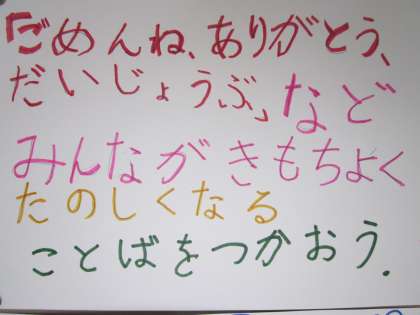 「ごめんね、ありがとう、
だいじょうぶ」など
みんながきもちよく
たのしくなる
ことばをつかおう.